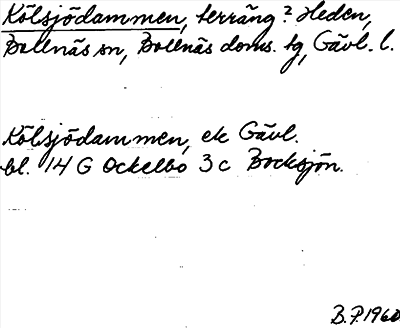 Kölsjödammen, terräng? Heden,
Bollnäs sn, Bollnäs doms. tg, Gävl. l.
Kölsjödammen, ek Gävl.
bl. 14 G Ockelbo 3 c Bocksjön.
B.P. 1960